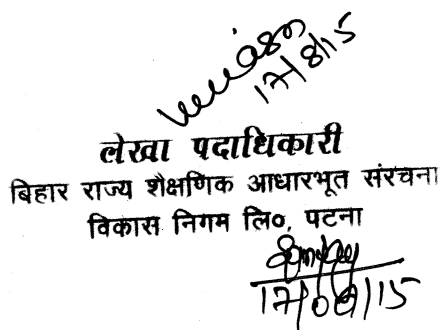 17/8/15
लेखा पदाधिकारी
बिहार राज्य शैक्षणिक आधारभूत संरचना
विकास निगम लि०, पटना
17/08/15